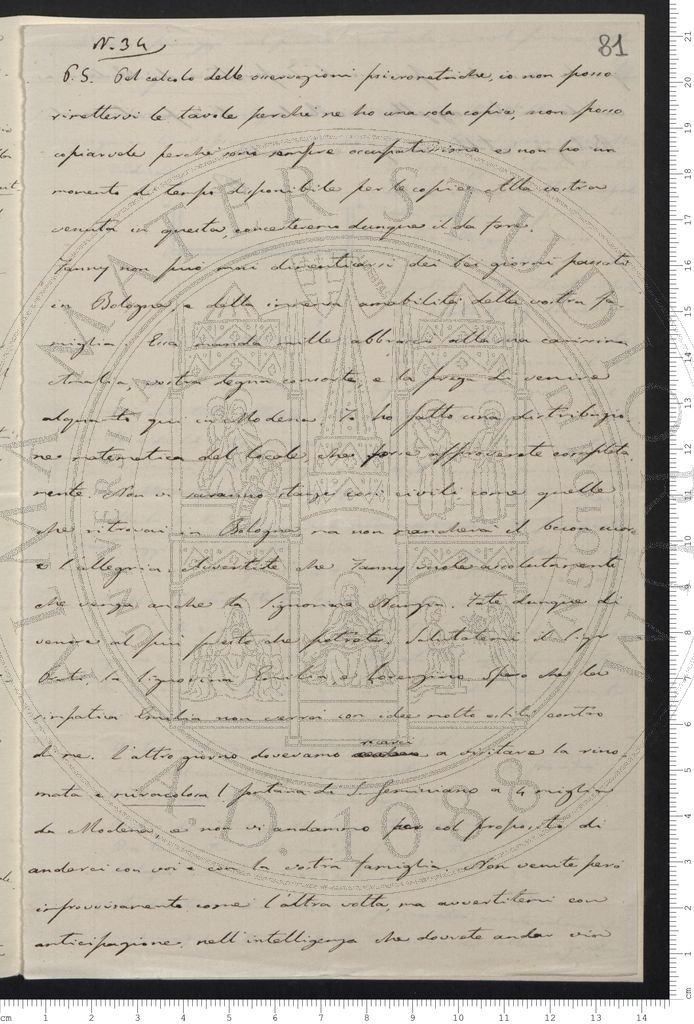 N. 34
81
P. S. Pel calcolo delle osservazioni psicrometriche, io non posso
rimettervi le tavole perché ne ho una sola copia, non posso
copiarvele perché sono sempre occupatissimo e non ho un
momento di tempo disponibile per le copie. Alla vostra
venuta in questa, concerteremo dunque il da fare.
Fanny non può mai dimenticarsi dei bei giorni passati
in Bologna, e della immensa amabilità della vostra fa-
miglia. Essa manda mille abbracci alla sua carissima
Amalia, vostra degna consorte, e la prega di venire
alquanto qui in Modena. Io ho fatto una distribuzio-
ne matematica del locale che forse approverete completa-
mente. Non vi saranno stanze così civili come quelle
che ritrovai in Bologna ma non mancherà il buon cuore
e l'allegria. Avvertite che Fanny vuole assolutamente
che venga anche la Signorina
Fate dunque di
venire al più presto che potrete. Salutatemi il Sigr
la Signorina Emilia, e Lorenzino. Spero che la
simpatica Emilia non verrà con idee molto ostili contro
di me. L'altro giorno dovevamo recarci a visitare la rino-
mata e miracolosa ! fontana di S. Geminiano a 4 miglia
da Modena, e non vi andammo col proposito di
andarci con voi e con la vostra famiglia. Non venite però
improvvisamente come l'altra volta, ma avvertitemi con
anticipazione, nell'intelligenza che dovrete andar via
ALMA MATER STUDIORUM
A.D. 1088